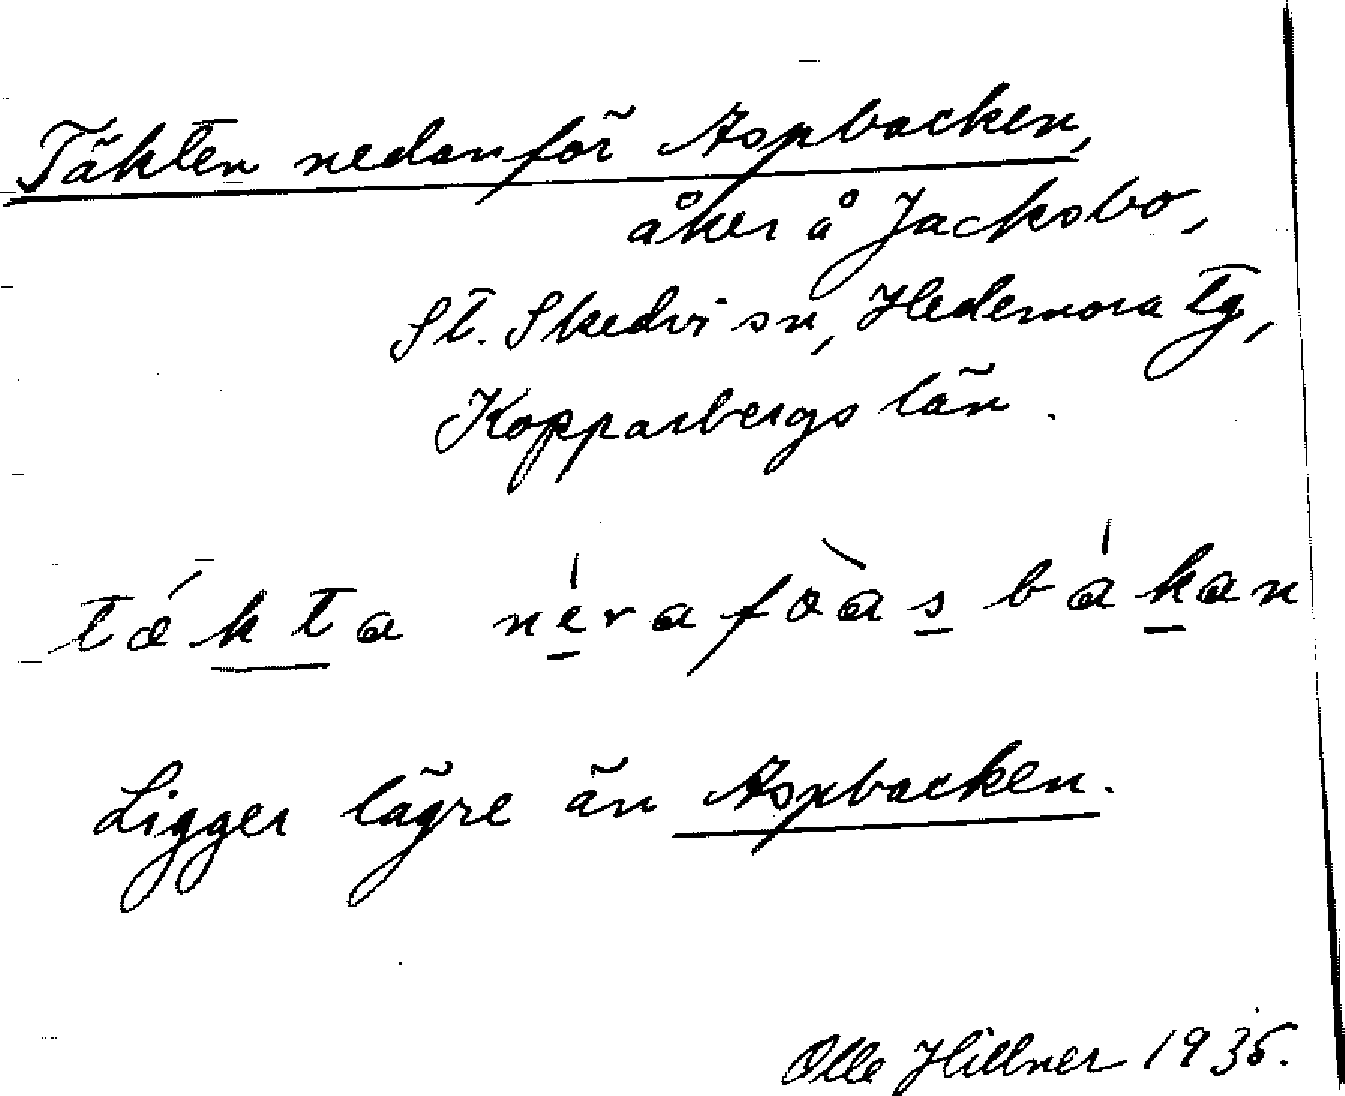 Täkten nedanför Aspbacken,
åker å Jacksbo,
St. Skedvi sn, Hedemora tg,
Kopparbergs län.
tækta nérafòas bákan
Ligger lägre än Aspbacken.
Olle Hillner 1935.